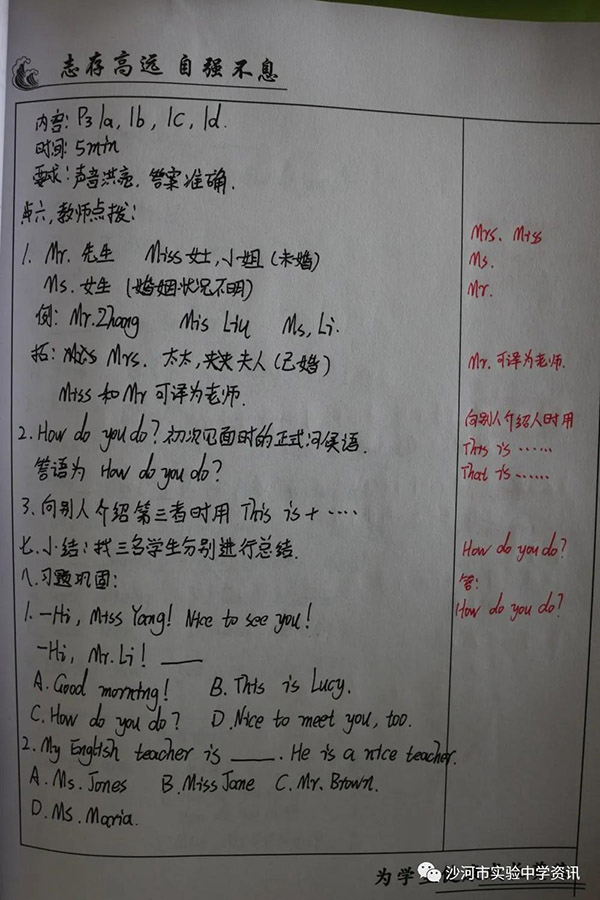 志存高远 自强不息
内容: P3 1a, 1b, 1c, 1d.
时间: 5min
要求: 声音洪亮, 答案准确.
六, 教师点拨:
1. Mr. 先生 Miss 女士, 小姐 (未婚)
Ms. 女生 (婚姻状况不明)
例: Mr. Zhang Mis Liu Ms, Li.
拓: Mrs. 太太, 夫人 (已婚)
Miss 和 Mr 可译为老师.
2. How do you do? 初次见面时的正式问候语.
答语为 How do you do?
3. 向别人介绍第三者时用 This is + ……
七. 小结: 找三名学生分别进行总结.
八. 习题巩固:
1. —Hi, Miss Yang! Nice to see you!
—Hi, Mr. Li! ____
A. Good morning! B. This is Lucy.
C. How do you do? D. Nice to meet you, too.
2. My English teacher is ____. He is a nice teacher.
A. Ms. Jones B. Miss Jane C. Mr. Brown.
D. Ms. Maria.
Mrs. Miss
Ms.
Mr.
Mr. 可译为老师.
向别人介绍人时用
This is ……
That is ……
How do you do?
答:
How do you do?
为学
沙河市实验中学资讯